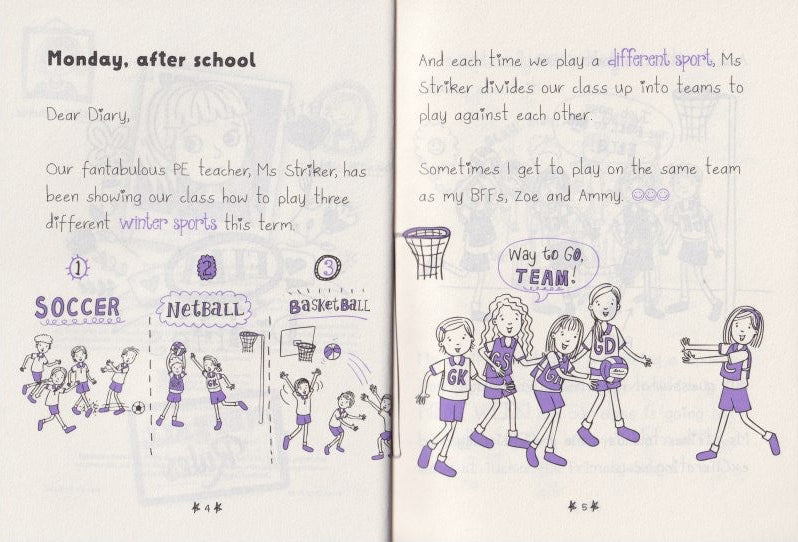 Monday, after school
Dear Diary,
Our fantabulous PE teacher, Ms Striker, has
been showing our class how to play three
different winter sports this term.
1
SOCCER
2
NETBALL
GK
3
BASKETBALL
4
And each time we play a different sport, Ms
Striker divides our class up into teams to
play against each other.
Sometimes I get to play on the same team
as my BFFs, Zoe and Ammy. ☺☺☺
Way to GO,
TEAM!
GK
GS
GD
5